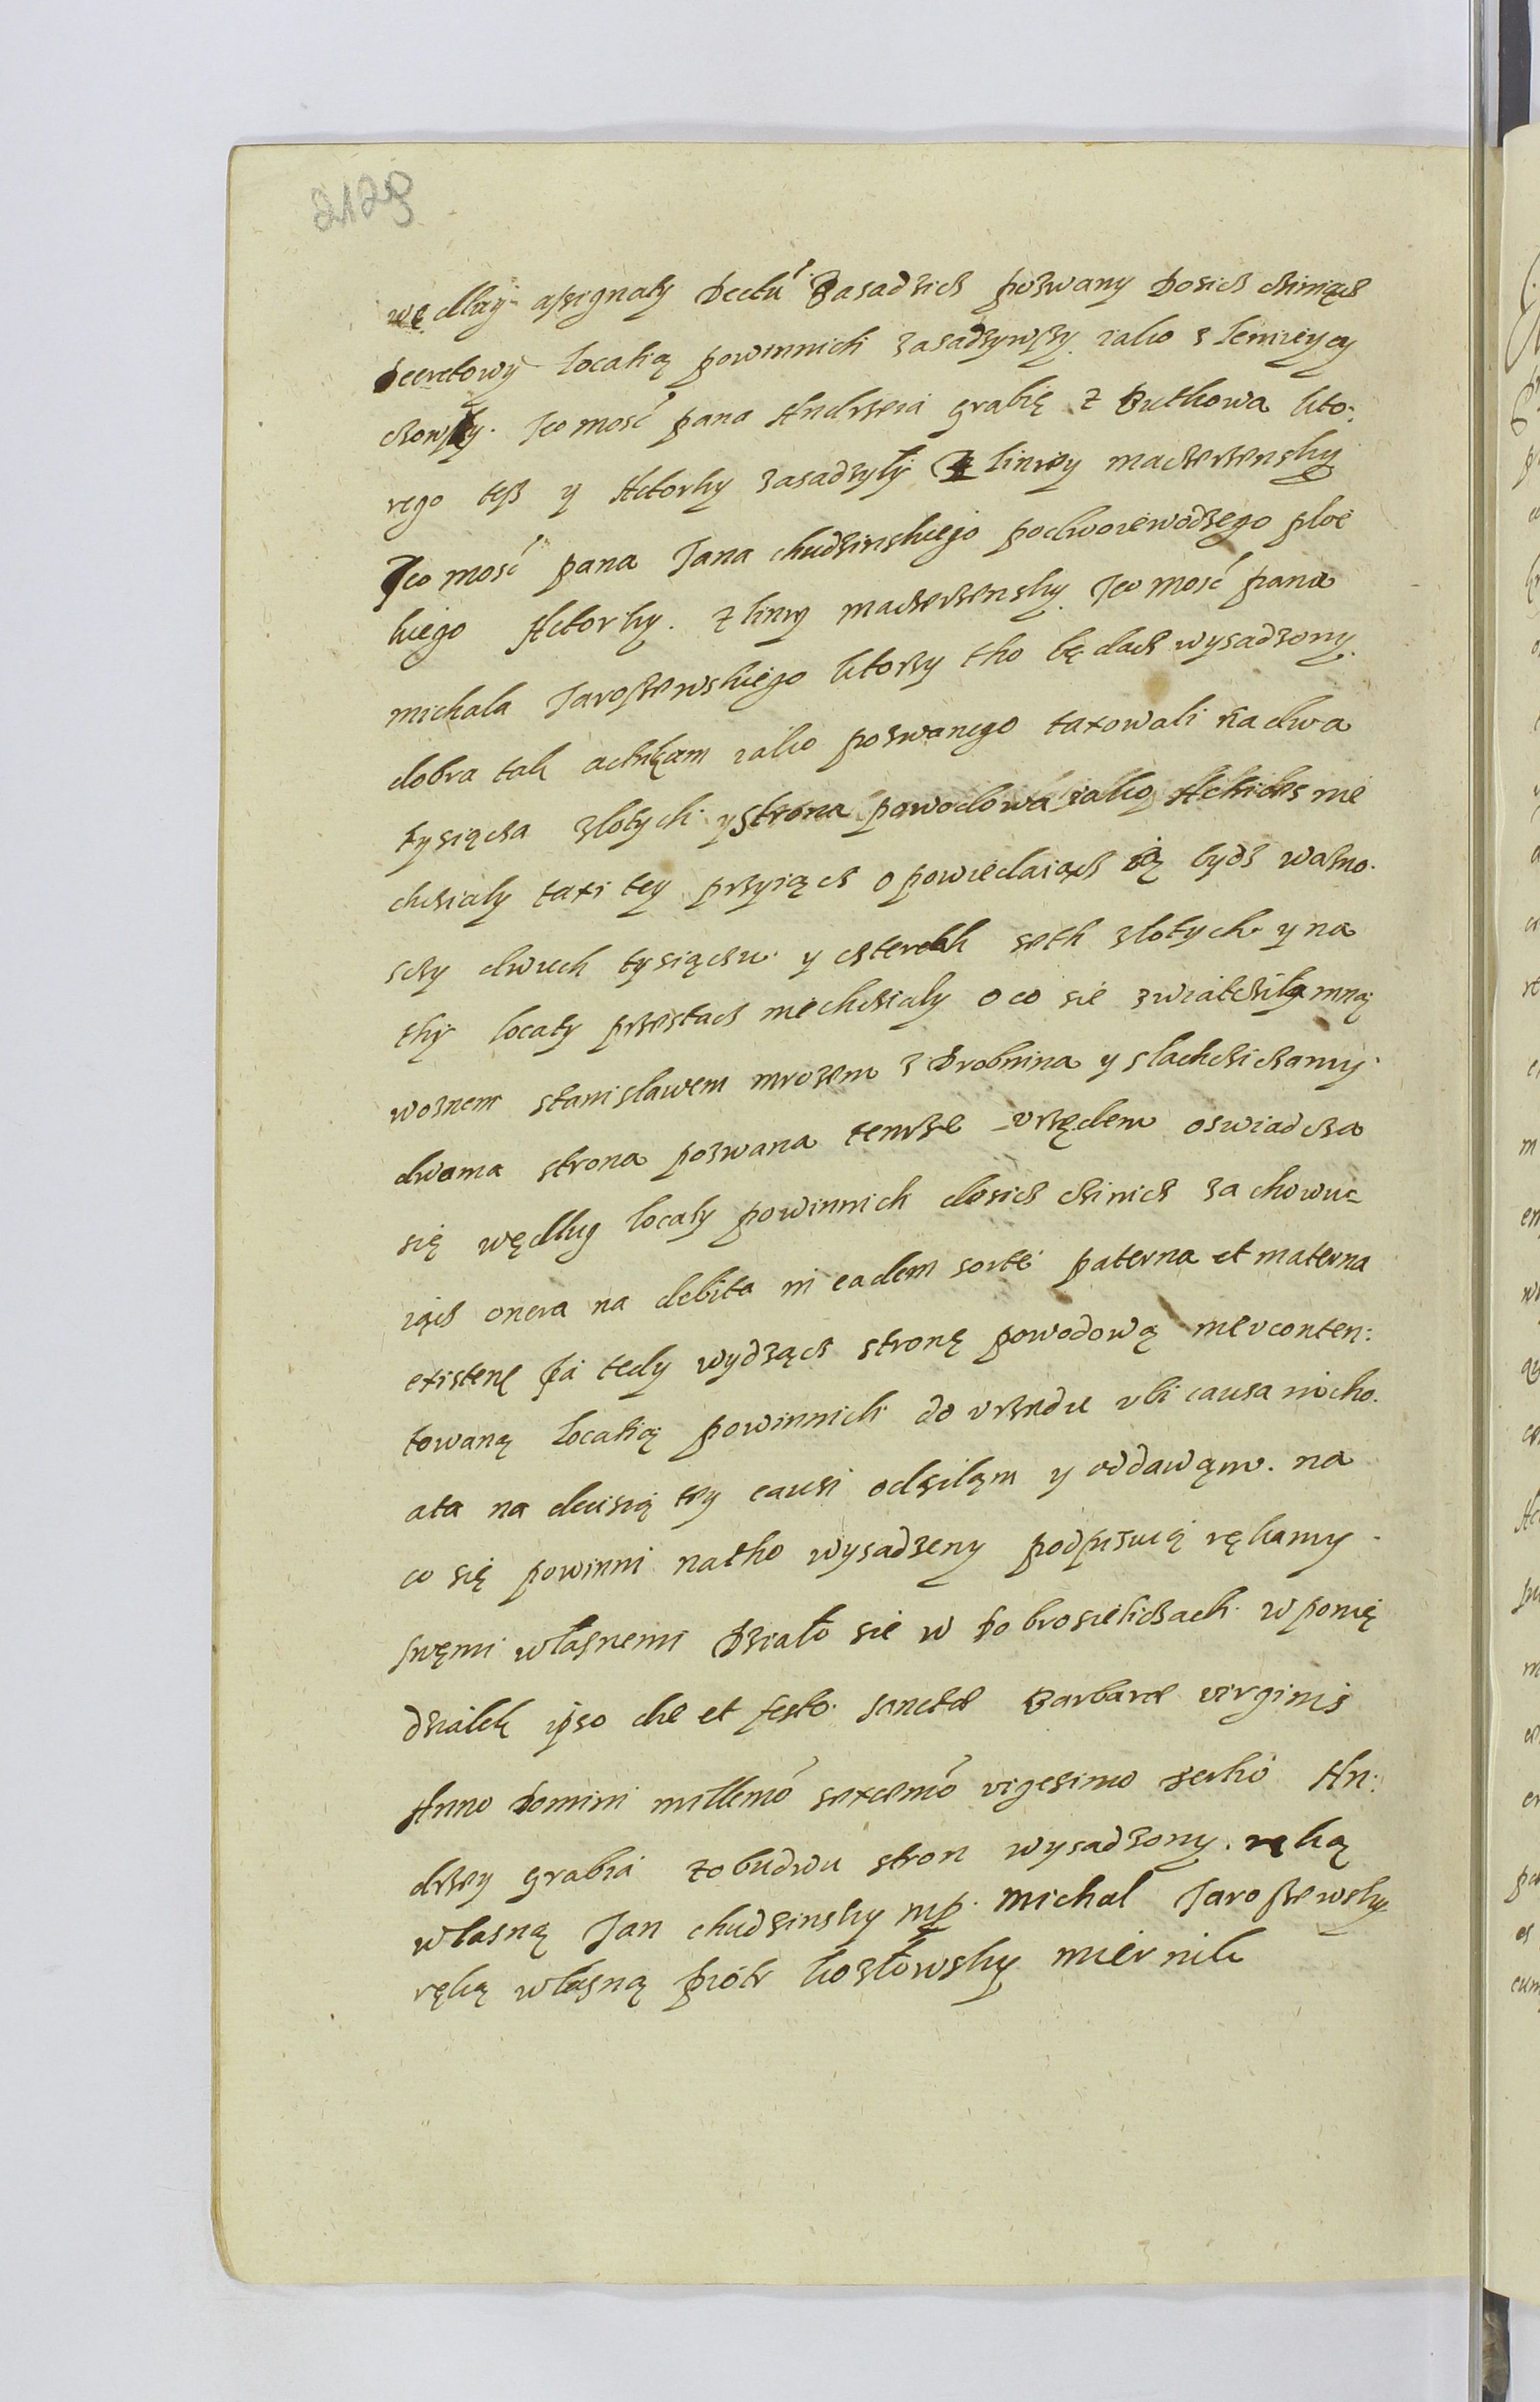 2129
wedlug assignaty Dectu Zasadzicz pozwany Dosicz cziniącz
Decretowy locatią powinnich zasadzywszy iako z leniiey oy
czowsky. Jeo mosć pana Andrzeia grabię z Buthowa kto:
rego tesz y Actorky zasadzyly z liniey maczerzensky
Jeo mosć pana Jana chudzinskiego podwoiewodzego ploc
kiego Actorky. z liniy macierzensky. Jeo mosć pana
michala Jaroszewskiego ktorzy tho będacz wysadzony
dobra tak actricum iako pozwanego taxowali na dwa
tysiącza zlotych y strona powodowa iako Actrices nie
chcialy taxi tey przyiącz opowiedaiącz ią bydz wazno.
sczy dwuch tysiączu y czterech seth zlotych y na
thy locaty przestacz niechcialy o co sie zwiatczily mną
woznem stanislawem mrozem z Drobnina y slachczicami
dwoma strona pozwana temze vrzędem oswiadcza
się wędlug locaty powinnich dosicz czinicz zachowu=
iącz onera na debita in eadem sorte paterna et materna
existen Ja tedy wydząc stronę powodową nieuconten:
towaną locatią powinnich do vrzedu vbi causa incho.
ata na decisią tey causi odsilam y oddawąm. na
co się powinni natho wysadzeny podpisuią rękamy
swęmi wlasnemi Dzialo sie w Dobrosielicach w ponie
dzialek ipso die et festo sanctae Barbarae virginis
Anno Domini millemo sexcemo vigesimo tertio An:
drzey grabia zobudwu stron wysadzony. ręką
wlasną Jan chudzinsky mp. Michal Jaroszewsky
ręką wlasną piotr kozlowsky miernik